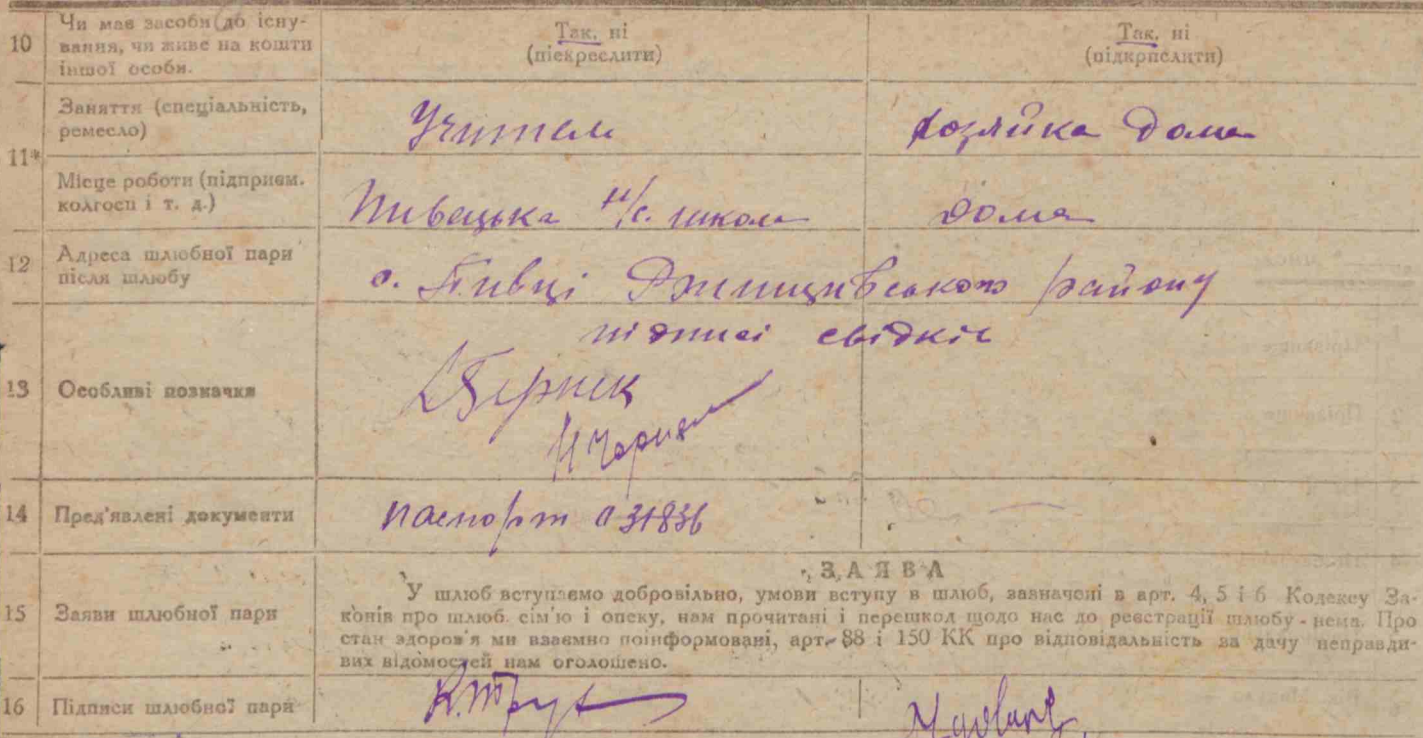 10 Чи має засоби до існу-
вання, чи живе на кошти
іншої особи.
Так, ні
(піекреслити)
Так, ні
(підкрислити)
11*
Заняття (спеціальність,
ремесло)
Учитель
хозяйка дома
Місце роботи (підприєм.
колгосп і т. д.)
Пивецька н/с. школа
дома
12 Адреса шлюбної пари
після шлюбу
с. Пивці Ржищівського району
13 Особливі позначки
підписі свідків
14 Пред'явлені документи
паспорт 031836
15 Заяви шлюбної пари
ЗАЯВА
У шлюб вступаємо добровільно, умови вступу в шлюб, зазначені в арт. 4, 5 і 6 Кодексу За-
конів про шлюб. сім'ю і опеку, нам прочитані і перешкод щодо нас до реєстрації шлюбу - нема. Про
стан здоров'я ми взаємно поінформовані, арт. 88 і 150 КК про відповідальність за дачу неправди-
вих відомостей нам оголошено.
16 Підписи шлюбної пари